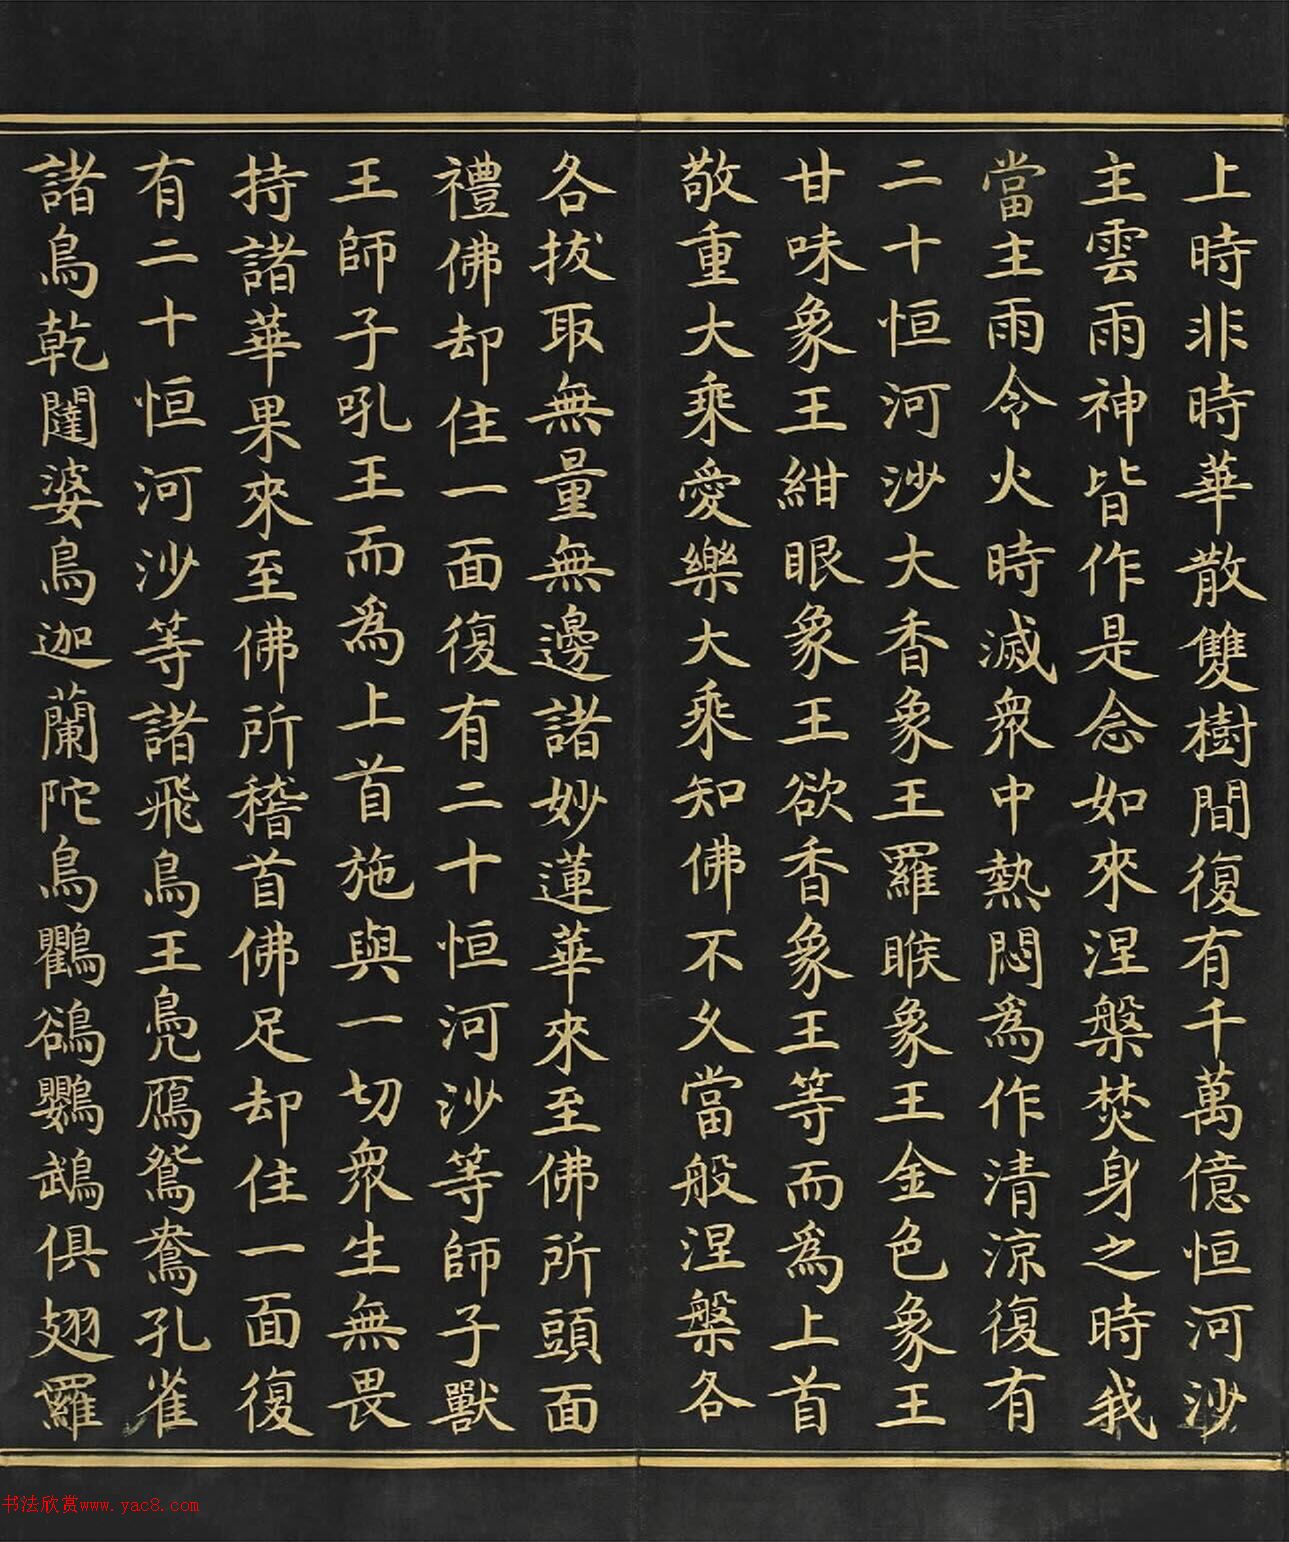 上時非時華散雙樹間復有千萬億恒河沙
主雲雨神皆作是念如來涅槃焚身之時我
當主雨令火時滅衆中熱悶爲作清涼復有
二十恒河沙大香象王羅睺象王金色象王
甘味象王紺眼象王欲香象王等而爲上首
敬重大乘愛樂大乘知佛不久當般涅槃各
各拔取無量無邊諸妙蓮華來至佛所頭面
禮佛却住一面復有二十恒河沙等師子獸
王師子吼王而爲上首施與一切衆生無畏
持諸華果來至佛所稽首佛足却住一面復
有二十恒河沙等諸飛鳥王鳧鴈鴛鴦孔雀
諸鳥乾闥婆鳥迦蘭陀鳥鸜鵒鸚鵡俱翅羅
书法欣赏www.yac8.com